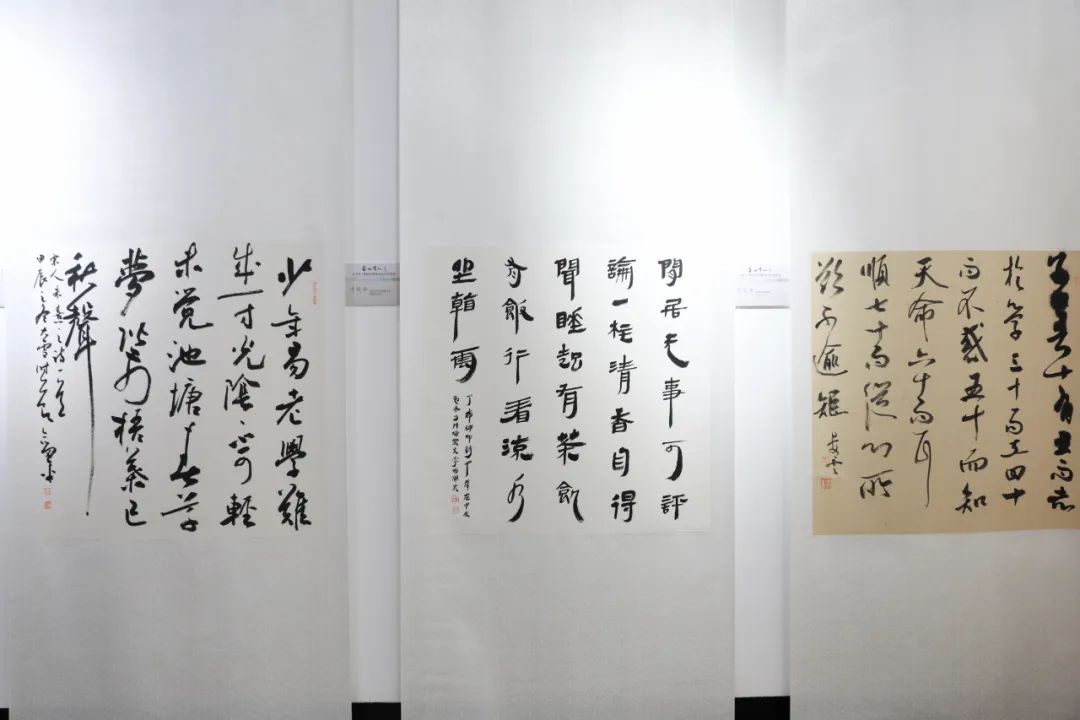 少年易老學難
成一寸光陰不可輕
未覺池塘春草
夢階前梧葉已
秋聲
宋人朱熹之詩一首
甲辰之冬大雪時
閒居无事可評
論一炷清香自得
聞睡起有茶飢
有飯行看流水
坐看雲
子曰吾十有五而志
於學三十而立四十
而不惑五十而知
天命六十而耳
順七十而從心所
欲不逾矩